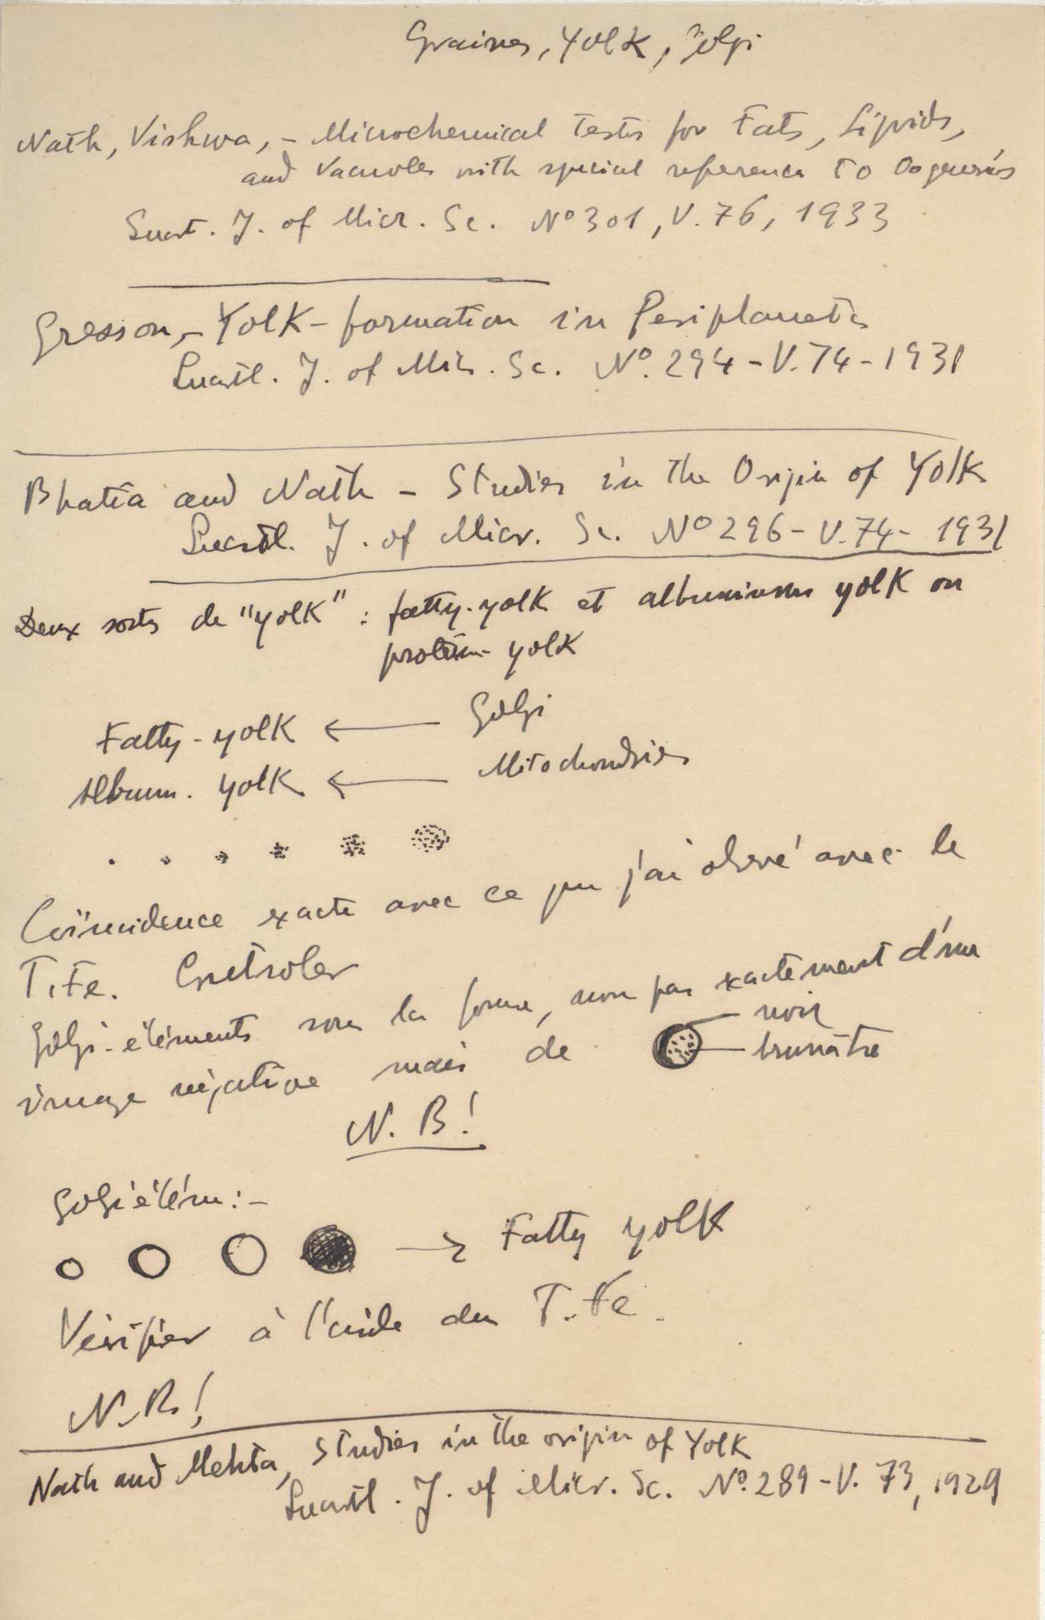 Graines, Yolk, Golgi
Nath, Vishwa, - Microchemical Tests for Fats, Lipids,
and Vacuoles with special reference to Oogenesis
Quart. J. of Micr. Sc. Nº 301, V. 76, 1933
Gresson, - Yolk-formation in Periplaneta
Quartl. J. of Micr. Sc. Nº. 294 - V. 74 - 1931
Bhatia and Nath - Studies in the Origin of Yolk
Quartl. J. of Micr. Sc. Nº 296 - V. 74 - 1931
Deux sortes de "yolk" : fatty-yolk et albuminous yolk ou
protein-yolk
Fatty-yolk ← Golgi
Album. yolk ← Mitochondries
Coïncidence exacte avec ce que j'ai observé avec le
T. Fe. Controler
Golgi-éléments sous la forme, non pas exactement d'une
noir
image négative mais de
brunâtre
N. B!
Golgi élém: -
→ Fatty yolk
Vérifier à l'aide du T. Fe.
N. B!
Nath and Mehta, Studies in the origin of Yolk
Quartl. J. of Micr. Sc. Nº. 289 - V. 73, 1929